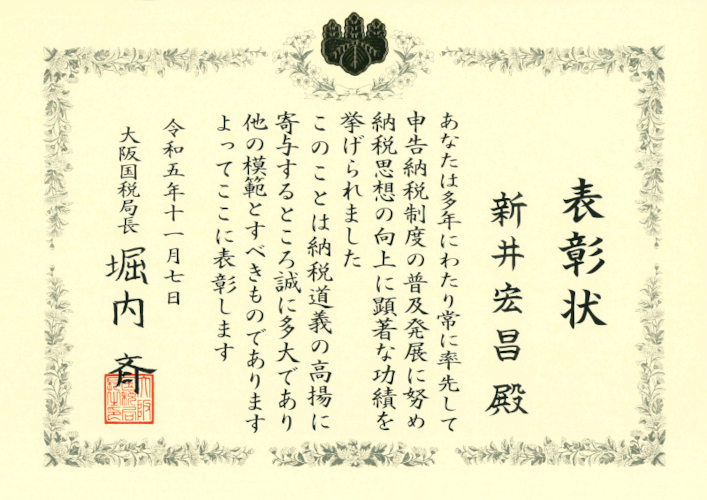 表彰状
新井宏昌殿
あなたは多年にわたり常に率先して
申告納税制度の普及発展に努め
納税思想の向上に顕著な功績を
挙げられました
このことは納税道義の高揚に
寄与するところ誠に多大であり
他の模範とすべきものであります
よってここに表彰します
令和五年十一月七日
大阪国税局長 堀内斉